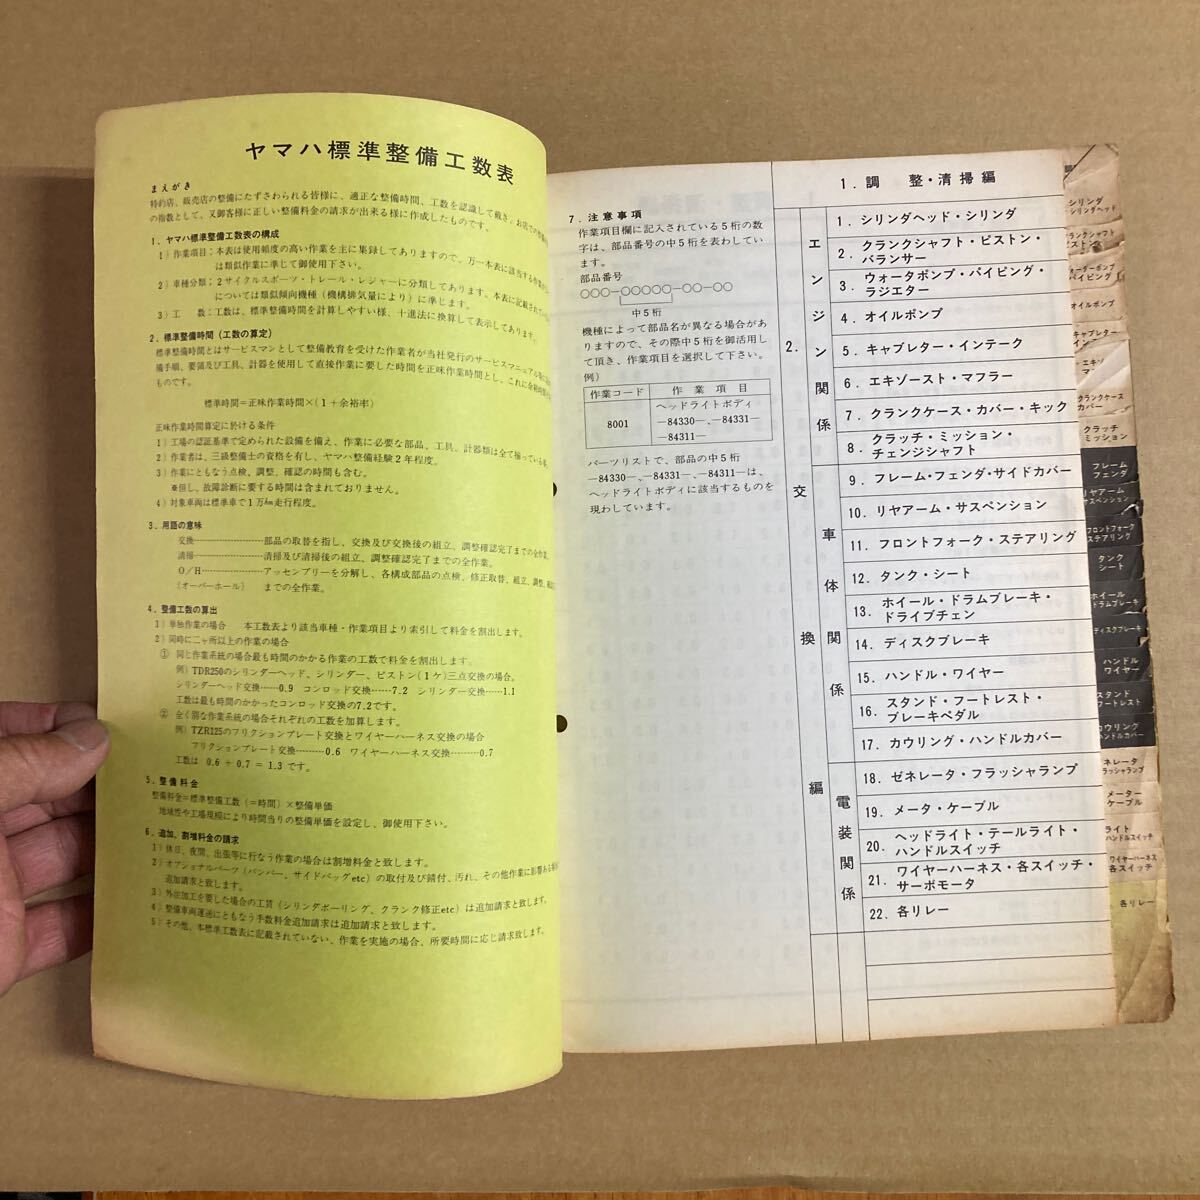 ヤマハ標準整備工数表
まえがき
特約店、販売店の整備にたずさわられる皆様に、適正な整備時間、工数を認識して戴き、お店での作業
の指数として、又御客様に正しい整備料金の請求が出来る様に作成したものです。
1．ヤマハ標準整備工数表の構成
1）作業項目：本表は使用頻度の高い作業を主に集録してありますので、万一本表に該当する作業
は類似作業に準じて御使用下さい。
2）車種分類：2サイクルスポーツ・トレール・レジャーに分類してあります。本表に記載されて
については類似傾向機種（機構排気量により）に準じます。
3）工　数：工数は、標準整備時間を計算しやすい様、十進法に換算して表示してあります。
2．標準整備時間（工数の算定）
標準整備時間とはサービスマンとして整備教育を受けた作業者が当社発行のサービスマニュアル
備手順、要領及び工具、計器を使用して直接作業に要した時間を正味作業時間とし、これに余裕時間
ものです。
標準時間＝正味作業時間×（1＋余裕率）
正味作業時間算定に於ける条件
1）工場の認証基準で定められた設備を備え、作業に必要な部品、工具、計器類は全て揃っている
2）作業者は、三級整備士の資格を有し、ヤマハ整備経験2年程度。
3）作業にともなう点検、調整、確認の時間も含む。
※但し、故障診断に要する時間は含まれておりません。
4）対象車両は標準車で1万㎞走行程度。
3．用語の意味
交換……………………部品の取替を指し、交換及び交換後の組立、調整確認完了までの全作業。
清掃……………………清掃及び清掃後の組立、調整確認完了までの全作業。
O／H……………………アッセンブリーを分解し、各構成部品の点検、修正取替、組立、調整、
（オーバーホール）　までの全作業。
4．整備工数の算出
1）単独作業の場合　本工数表より該当車種・作業項目より索引して料金を割出します。
2）同時に二ヶ所以上の作業の場合
①　同じ作業系統の場合最も時間のかかる作業の工数で料金を割出します。
例）TDR250のシリンダーヘッド、シリンダー、ピストン（1ケ）三点交換の場合。
シリンダーヘッド交換……0.9　コンロッド交換……7.2　シリンダー交換……1.1
工数は最も時間のかかったコンロッド交換の7.2です。
②　全く異な作業系統の場合それぞれの工数を加算します。
例）TZR125のフリクションプレート交換とワイヤーハーネス交換の場合
フリクションプレート交換………0.6　ワイヤーハーネス交換………0.7
工数は　0.6 ＋ 0.7 ＝ 1.3 です。
5．整備料金
整備料金＝標準整備工数（＝時間）×整備単価
地域性や工場規模により時間当りの整備単価を設定し、御使用下さい。
6．追加、割増料金の請求
1）休日、夜間、出張等に行なう作業の場合は割増料金と致します。
2）オプショナルパーツ（バンパー、サイドバッグetc）の取付及び錆付、汚れ、その他作業に影響ある
追加請求と致します。
3）外注加工を要した場合の工賃（シリンダボーリング、クランク修正etc）は追加請求と致します。
4）整備車両運送にともなう手数料金追加請求は追加請求と致します。
5）その他、本標準工数表に記載されていない、作業を実施の場合、所要時間に応じ請求致します。
7．注意事項
作業項目欄に記入されている5桁の数
字は、部品番号の中5桁を表わしてい
ます。
部品番号
○○○－○○○○○－○○－○○
中5桁
機種によって部品名が異なる場合があ
りますので、その際中5桁を御活用し
て頂き、作業項目を選択して下さい。
例）
作業コード　作業項目
8001　ヘッドライトボディ
－84330－、－84331－
－84311－
パーツリストで、部品の中5桁
－84330－、－84331－、－84311－は、
ヘッドライトボディに該当するものを
現わしています。
1．調　整・清掃編
2．交換編
エンジン関係
1．シリンダヘッド・シリンダ
2．クランクシャフト・ピストン・
バランサー
3．ウォータポンプ・パイピング・
ラジエター
4．オイルポンプ
5．キャブレター・インテーク
6．エキゾースト・マフラー
7．クランクケース・カバー・キック
8．クラッチ・ミッション・
チェンジシャフト
車体関係
9．フレーム・フェンダ・サイドカバー
10．リヤアーム・サスペンション
11．フロントフォーク・ステアリング
12．タンク・シート
13．ホイール・ドラムブレーキ・
ドライブチェン
14．ディスクブレーキ
15．ハンドル・ワイヤー
16．スタンド・フートレスト・
ブレーキペダル
17．カウリング・ハンドルカバー
電装関係
18．ゼネレータ・フラッシャランプ
19．メータ・ケーブル
20．ヘッドライト・テールライト・
ハンドルスイッチ
21．ワイヤーハーネス・各スイッチ・
サーボモータ
22．各リレー
シリンダ
シリンダヘッド
クランクシャフト
オイルポンプ
キャブレター
クランクケース
カバー
クラッチ
ミッション
フレーム
フェンダ
リヤアーム
サスペンション
フロントフォーク
ステアリング
タンク
シート
ホイール
ドラムブレーキ
ディスクブレーキ
ハンドル
ワイヤー
スタンド
フートレスト
カウリング
ハンドルカバー
ネレータ
ラッシャランプ
メーター
ケーブル
ライト
ハンドルスイッチ
ワイヤーハーネス
各スイッチ
各リレー